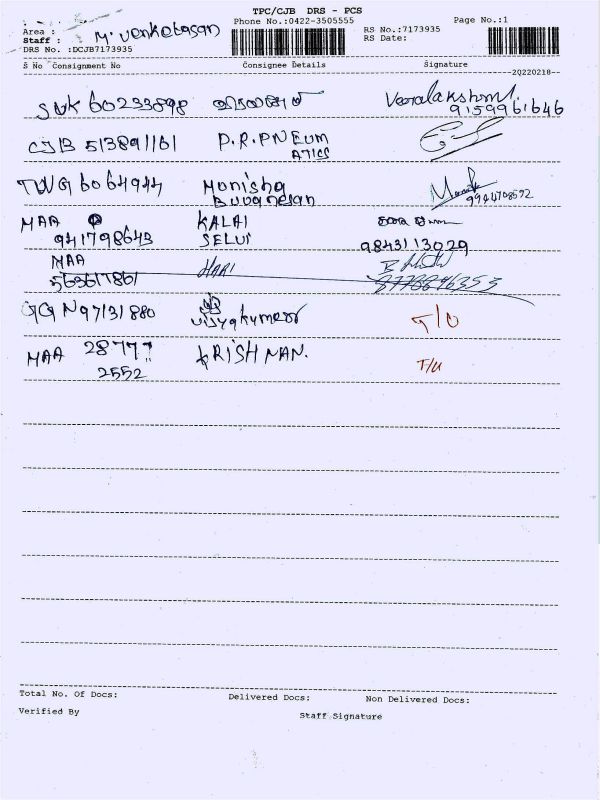 TPC/CJB DRS - PCS
Area :
Phone No.:0422-3505555
Page No.:1
Staff : M. Venketasan
RS No.:7173935
DRS No. :DCJB7173935
RS Date:
S No Consignment No Consignee Details Signature
2Q220218
SUK 60233898 Veeralakshmi
9159961646
CJB 513891161 P.R.PNEUM
ATICS
TWG 6064944 Monisha
Buvanesan 9944708592
MAA KALAI
941798643 SELVI 9843113029
MAA
563617861 HARI 8778846353
GGN97131880 Vijyakumar T/U
MAA 28777 KRISHNAN. T/U
2552
Total No. Of Docs: Delivered Docs: Non Delivered Docs:
Verified By Staff Signature